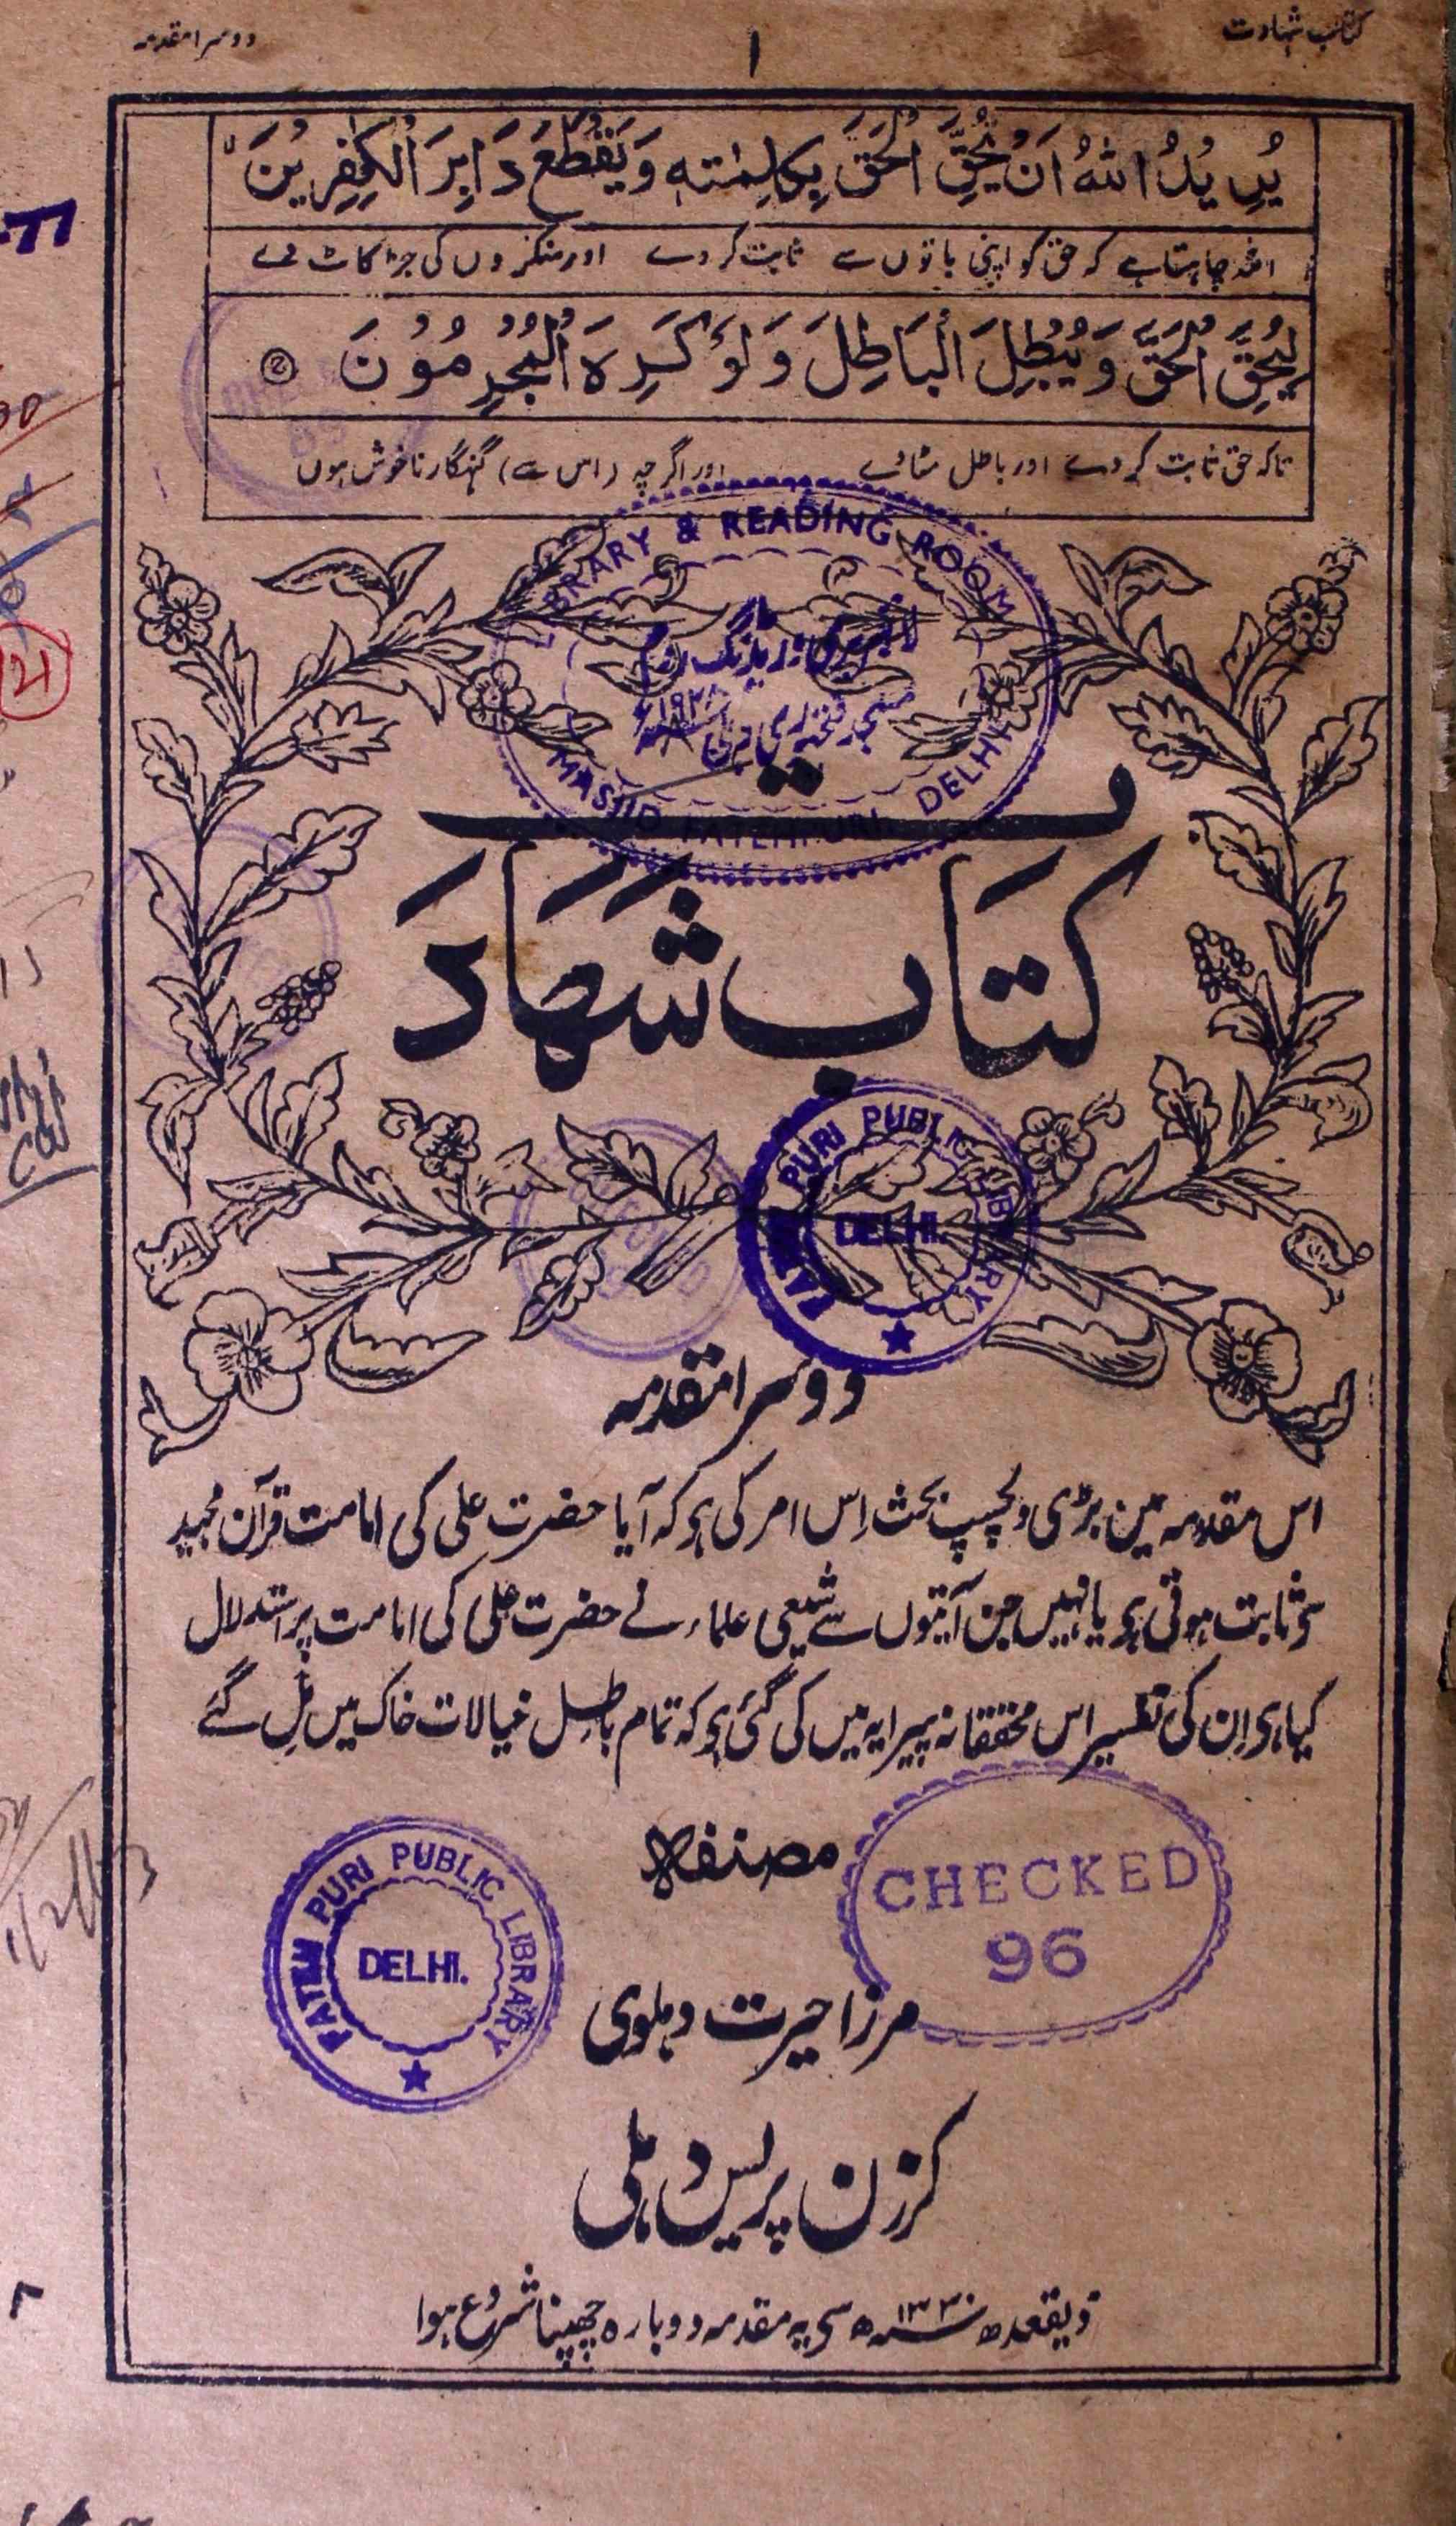 کتاب شہادت
۱
دوسرا مقدمہ
يُرِيدُ اللهُ اَنْ يُّحِقَّ الْحَقَّ بِكَلِمٰتِهٖ وَيَقْطَعَ دَابِرَ الْكٰفِرِيْنَ
اللہ چاہتا ہے کہ حق کو اپنی باتوں سے ثابت کر دے اور منکروں کی جڑ کاٹ دے
لِيُحِقَّ الْحَقَّ وَيُبْطِلَ الْبَاطِلَ وَلَوْ كَرِهَ الْمُجْرِمُوْنَ
تاکہ حق ثابت کر دے اور باطل مٹا دے اور اگرچہ (اس سے) گنہگار ناخوش ہوں
LIBRARY & READING ROOM
لائبریری و ریڈنگ روم
۱۹۳۸ء
مسجد فتحپوری دہلی
MASJID FATEHPURI, DELHI
کتاب شہادت
FATEH PURI PUBLIC LIBRARY
DELHI.
دوسرا مقدمہ
اس مقدمہ مین بڑی دلچسپ بحث اِس امر کی ہو کہ آیا حضرت علی کی امامت قرآن مجید
سو ثابت ہوتی ہو یا نہیں جن آیتوں سے شیعی علماء نے حضرت علی کی امامت پر استدلال
کیا ہو اِن کی تفسیر اس محققانہ پیرایہ میں کی گئی ہو کہ تمام باطل خیالات خاک میں مِل گئے
مصنفہ
CHECKED
96
FATEH PURI PUBLIC LIBRARY
DELHI.
مرزا حیرت دہلوی
کرزن پریس دہلی
ذیقعدہ سنہ ۱۳۳۰ھ سو یہ مقدمہ دوبارہ چھپنا شروع ہوا